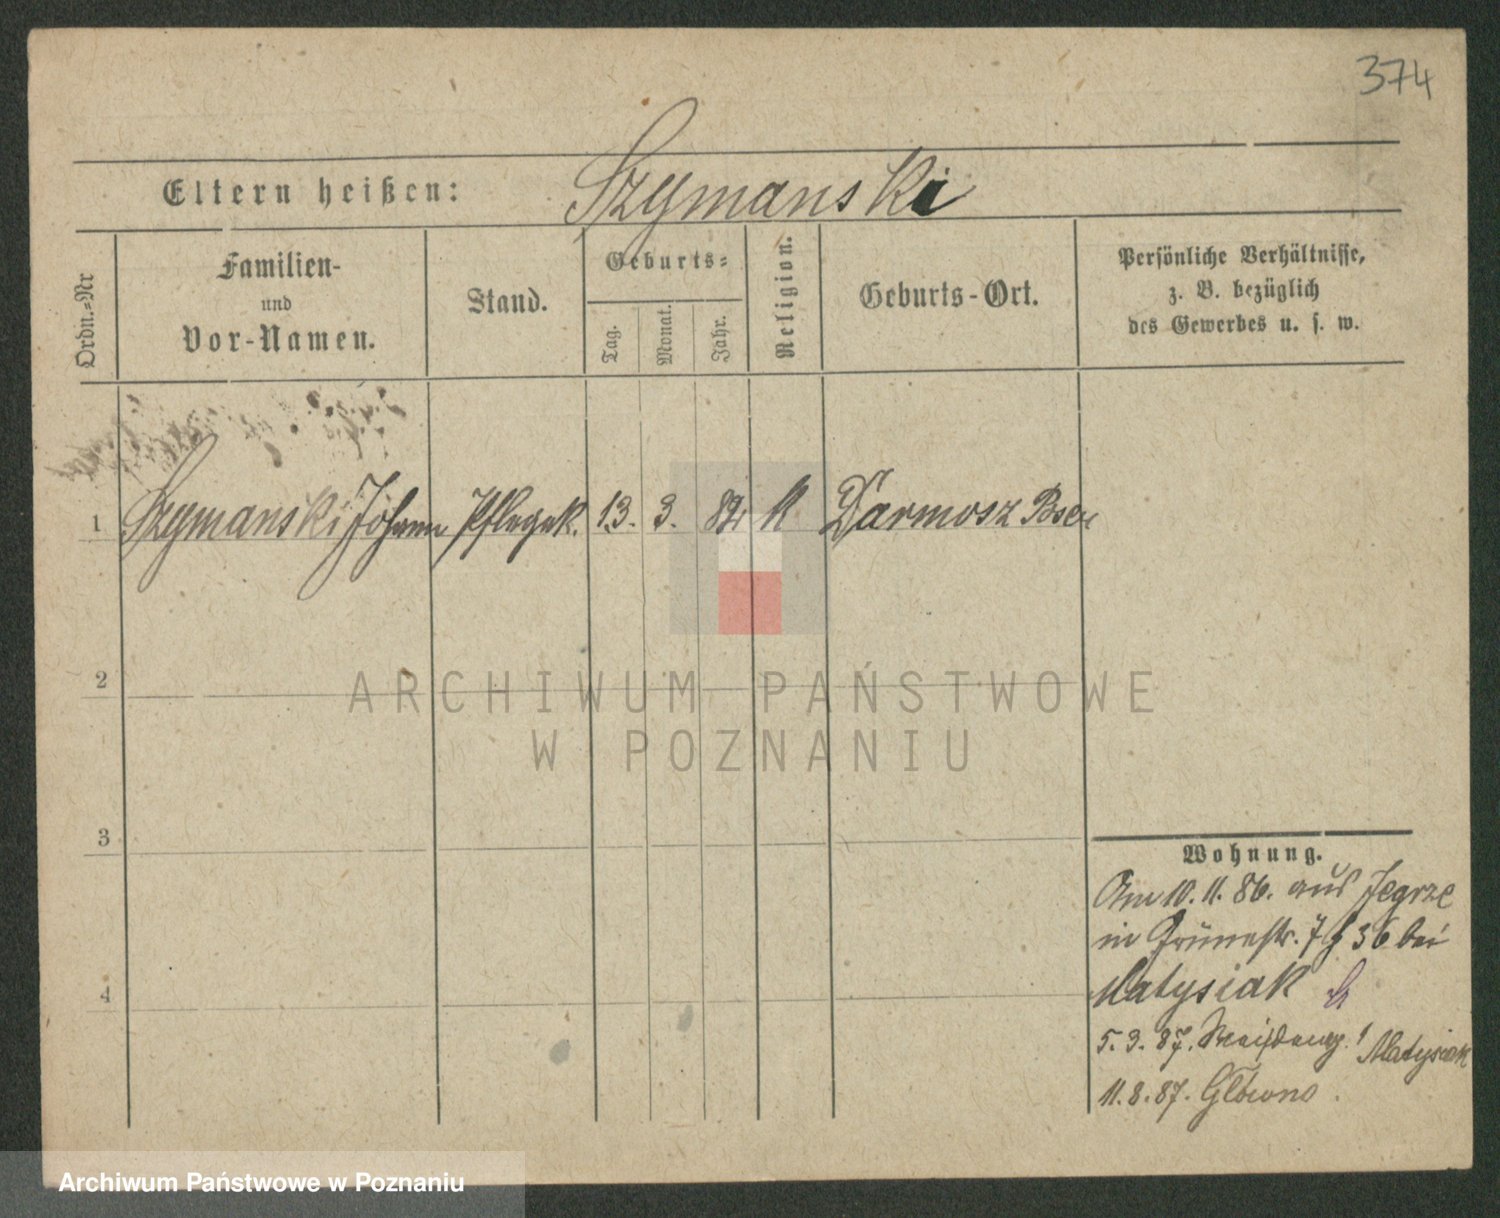 374
Eltern heißen: Szymanski
Ordn.=Nr
Familien-
und
Vor-Namen.
Stand.
Geburts=
Tag.
Monat.
Jahr.
Religion.
Geburts-Ort.
Persönliche Verhältnisse,
z. B. bezüglich
des Gewerbes u. s. w.
1 Szymanski Johann Pflegek. 13. 3. 82 k
2
ARCHIWUM PAŃSTWOWE
W POZNANIU
3
Wohnung.
Am 10. 11. 86. aus Jegrze
in Grünestr. 7 36 bei
4
Matysiak
5. 3. 87. Matysiak
11. 8. 87. Główno.
Archiwum Państwowe w Poznaniu